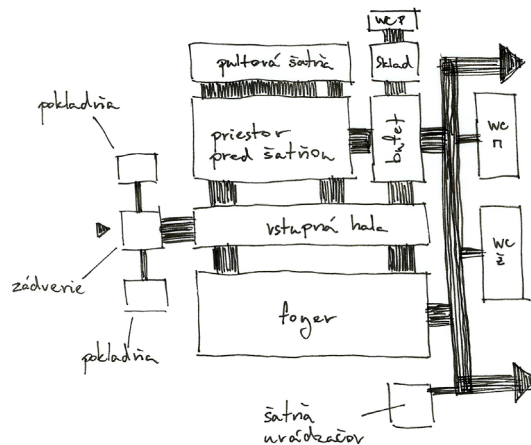 WC P
pultová šatňa
sklad
pokladňa
priestor
pred šatňou
bufet
WC
M
vstupná hala
WC
Ž
zádverie
foyer
pokladňa
šatňa
uvádzačov